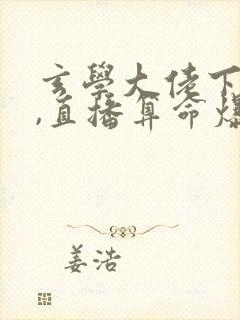 玄學大佬下
,直播算命爆
姜浩